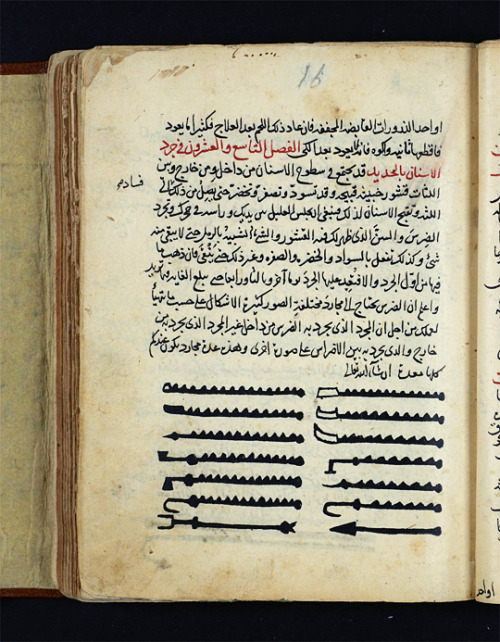 16
او احد الذرورات القابضه المجففه فان عاد ذلك اللحم بعد العلاج فكثيرا ما يعود
فاقطعها ثانيه واكوه فانه لا يعود بعد الكي الفصل التاسع والعشرون في جرد
الاسنان بالحديد قد يجتمع في سطوح الاسنان من داخل ومن خارج وبين
اللثات قشور خشنه قبيحه وقد تسود وتصفر وتخضر حتى يصل من ذلك الى
فساد
اللثه وتقبح الاسنان لذلك فينبغي ان يجلس العليل بين يديك وراسه في حجرك وتجرد
الضرس والسن الذي ظهر لك فيه القشور والشيء الشبيه بالرمل حتى لا يبقى منه
شيء وكذلك تفعل بالسواد والخضره والصفره وغير ذلك حتى تنقى فان ذهب ما
فيها من اول الجرد والا فتعيد عليها الجرد يوما آخر وثالثا ورابعا حتى تبلغ الغايه فيما تريد
واعلم ان الضرس يحتاج الى مجارد مختلفة الصور كثيرة الاشكال على حسب ما يتهيأ
لعملك من اجل ان المجرد الذي يجرد به الضرس من داخل غير المجرد الذي يجرد به من
خارج والذي يجرد به بين الاضراس على صورة اخرى وهذه عدة مجارد تكون عندكم
كلها معدة ان شاء الله تعالى